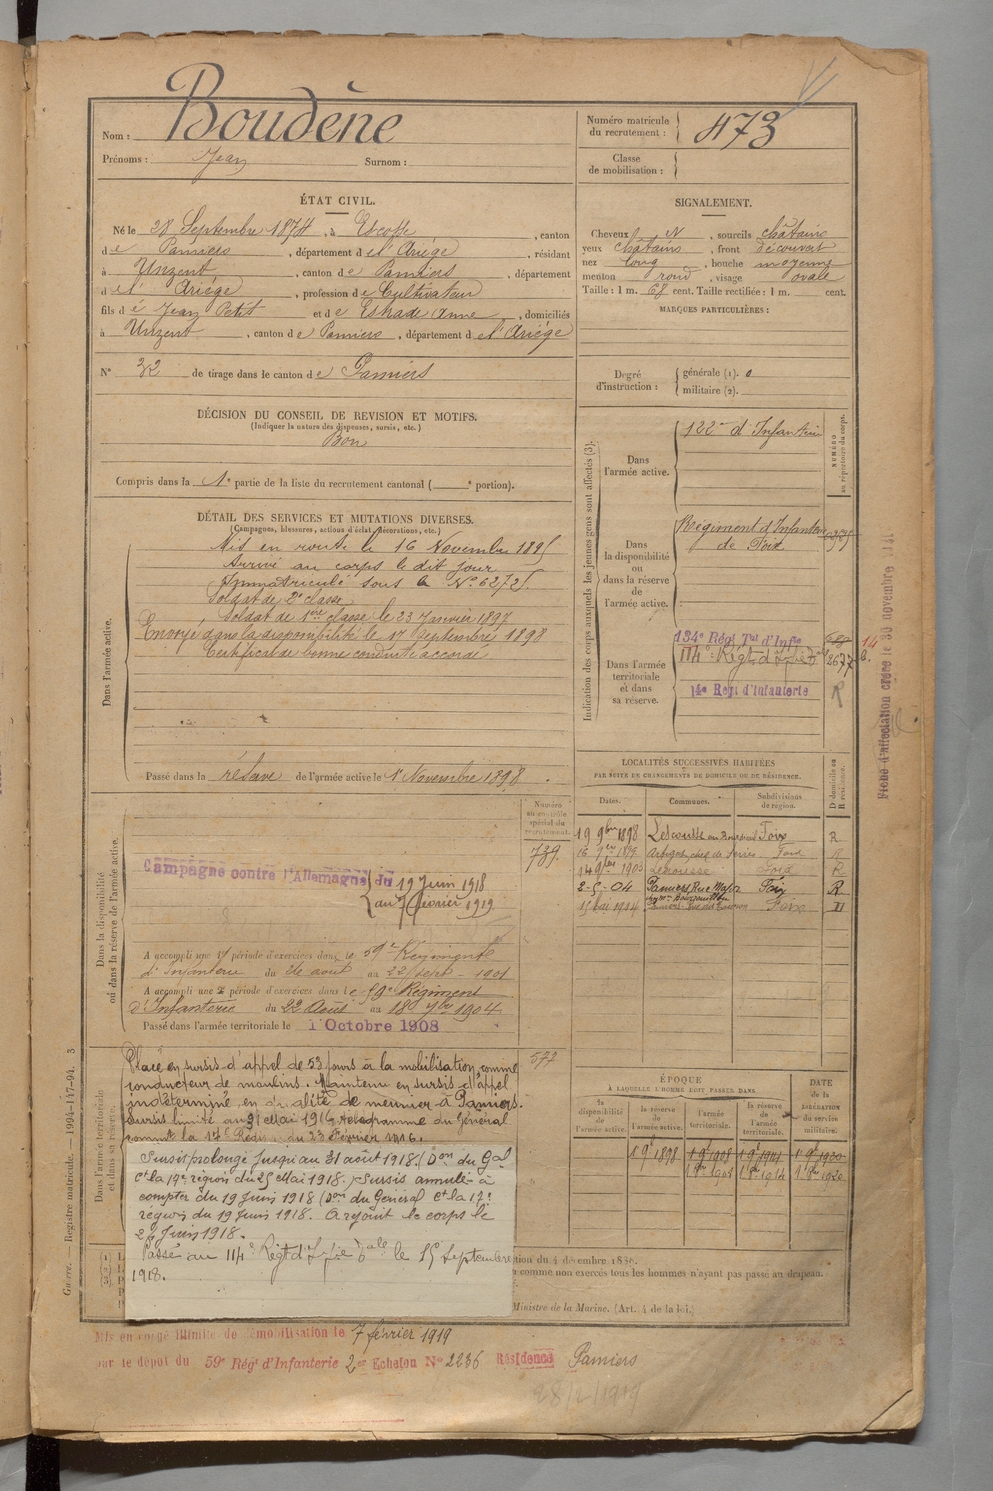 Nom : Boudène
Prénoms : Jean Surnom :
Numéro matricule du recrutement : 473
Classe de mobilisation :
ÉTAT CIVIL.
Né le 28 Septembre 1874, à Escosse, canton
de Pamiers, département de l'Ariège, résidant
à Unzent, canton de Pamiers, département
de l'Ariège, profession de Cultivateur
fils de Jean Petit et de Estrade Anne, domiciliés
à Unzent, canton de Pamiers, département de l'Ariège
N° 32 de tirage dans le canton de Pamiers
SIGNALEMENT.
Cheveux N, sourcils châtains
yeux châtains, front découvert
nez long, bouche moyenne
menton rond, visage ovale
Taille : 1 m. 68 cent. Taille rectifiée : 1 m. cent.
MARQUES PARTICULIÈRES :
Degré d'instruction : générale (1). 0
militaire (2).
DÉCISION DU CONSEIL DE REVISION ET MOTIFS.
(Indiquer la nature des dispenses, sursis, etc.)
Bon
Compris dans la 1e partie de la liste du recrutement cantonal ( e portion).
DÉTAIL DES SERVICES ET MUTATIONS DIVERSES.
(Campagnes, blessures, actions d'éclat, décorations, etc.)
Dans l'armée active.
Mis en route le 16 Novembre 1895
Arrivé au corps le dit jour
Immatriculé sous le N° 6275.
Soldat de 2e classe
Soldat de 1ère classe le 23 Janvier 1897
Envoyé dans la disponibilité le 17 Septembre 1898
Certificat de bonne conduite accordé
Passé dans la réserve de l'armée active le 1er Novembre 1898.
Indication des corps auxquels les jeunes gens sont affectés (3).
NUMÉRO au répertoire du corps.
Dans l'armée active.
122e d'Infanterie
Dans la disponibilité ou dans la réserve de l'armée active.
Régiment d'Infanterie
de Foix
Dans l'armée territoriale et dans sa réserve.
134e Régt Tal d'Infie
114e Régt d'Infie
14e Regt d'Infanterie
2677
R
Fiche d'affectation créée le 30 novembre
LOCALITÉS SUCCESSIVES HABITÉES
PAR SUITE DE CHANGEMENTS DE DOMICILE OU DE RÉSIDENCE.
Dates. Communes. Subdivisions de région. D domicile ou R résidence.
19 9bre 1898 Foix R
Foix R
14 1903 Lescousse Foix R
2-5-04 Pamiers, Rue Major Foix R
15 mai 1904 Foix D
Dans la disponibilité ou dans la réserve de l'armée active.
Numéro au contrôle spécial du recrutement.
739
Campagne contre l'Allemagne du 19 Juin 1918
au 7 février 1919
A accompli une 1e période d'exercices dans le 59e Régiment
d'Infanterie du 26 août au 22 Sept 1901
A accompli une 2e période d'exercices dans le 59e Régiment
d'Infanterie du 22 Août au 18 7bre 1904
Passé dans l'armée territoriale le 1 Octobre 1908
Dans l'armée territoriale et dans sa réserve.
577
Placé en sursis d'appel de 53 jours à la mobilisation comme
conducteur de moulins. Maintenu en sursis d'appel
indéterminé, en qualité de meunier à Pamiers.
Sursis limité au 31 Mai 1916 télégramme du Général
commt la 17e Région du 23 Février 1916.
Sursis prolongé jusqu'au 31 août 1918. (Don du Gal
Ct la 17e région du 25 Mai 1918. Sursis annulé à
compter du 19 Juin 1918 (Don du Général Ct la 17e
région du 19 Juin 1918. A rejoint le corps le
Juin 1918.
Passé au 114e Régt d'Infie le 15 Septembre
1918.
ÉPOQUE
À LAQUELLE L'HOMME DOIT PASSER DANS
DATE de la LIBÉRATION du service militaire.
la disponibilité de l'armée active. la réserve de l'armée active. l'armée territoriale. la réserve de l'armée territoriale.
1 9e 1898 1 9e 1908 1 9e 1914 1 9e 1920
1 8bre 1908 1 8bre 1914 1 8bre 1920
comme non exercés tous les hommes n'ayant pas passé au drapeau.
Ministre de la Marine. (Art. 4 de la loi.)
Guerre. — Registre matricule. — 1994-147-94. 3
Mis en congé illimité de démobilisation le 7 février 1919
sur le dépôt du 59e Régt d'Infanterie 2em Echelon N° 2236 Résidence Pamiers
28/2/1919